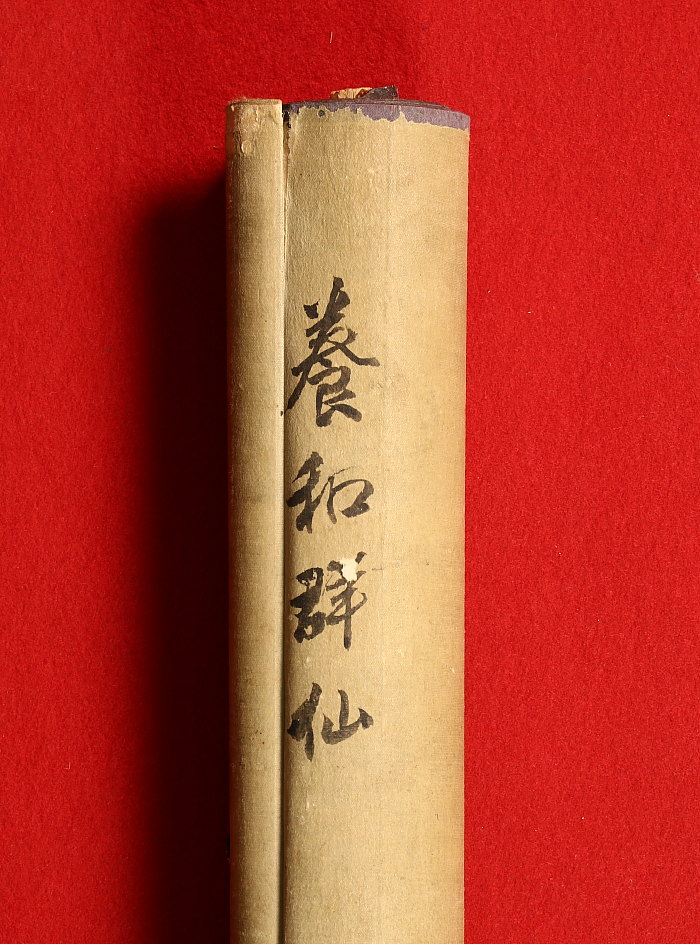 養和群仙